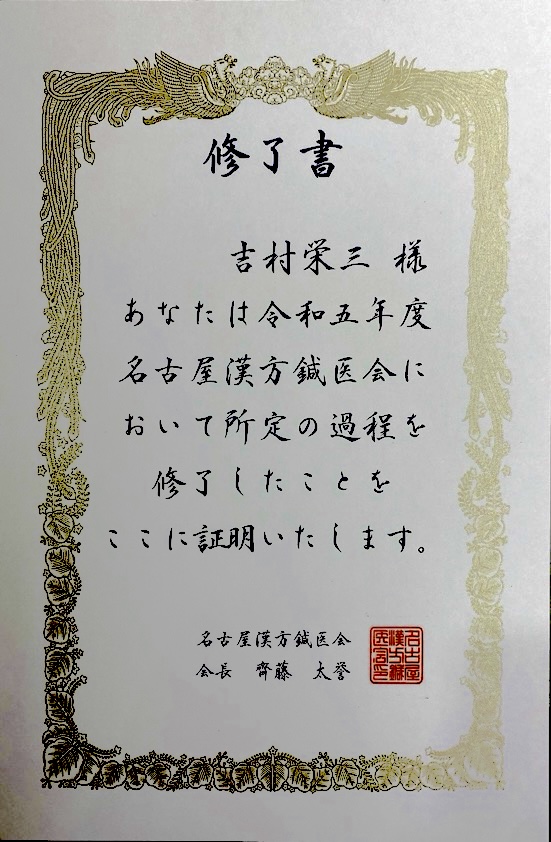 修了書
吉村栄三 様
あなたは令和五年度
名古屋漢方鍼医会に
おいて所定の過程を
修了したことを
ここに証明いたします。
名古屋漢方鍼医会
会長 齊藤 太誉
名古屋
漢方鍼
医会印